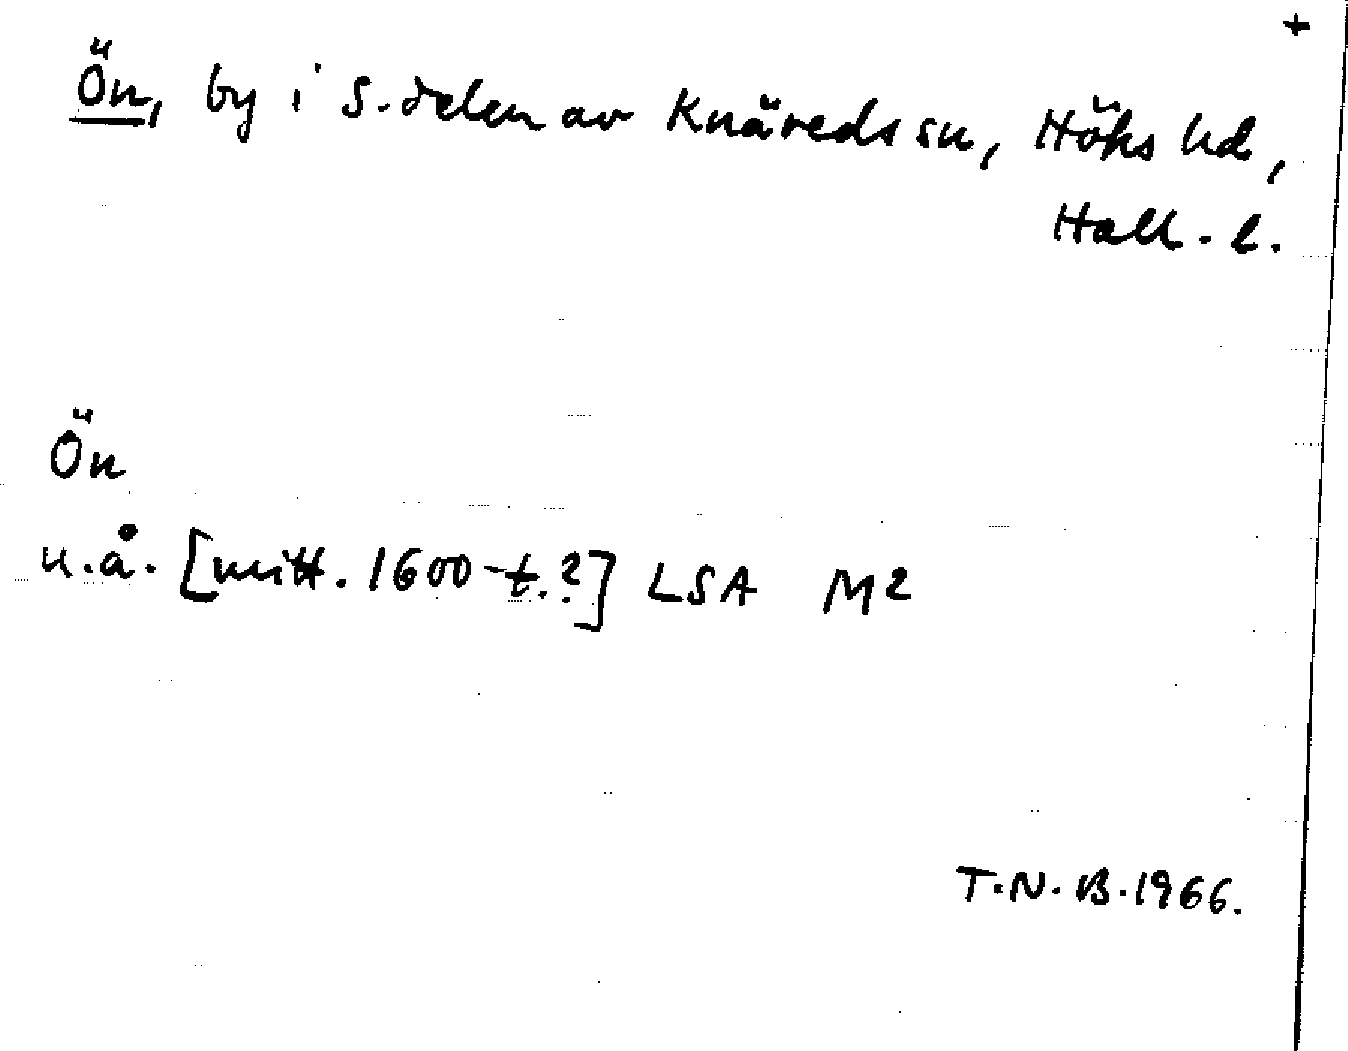 +
Ön, by i S. delen av Knäreds sn, Höks hd,
Hall. l.
Ön
u.å. [mitt. 1600-t.?] LSA M2
T.N.B. 1966.